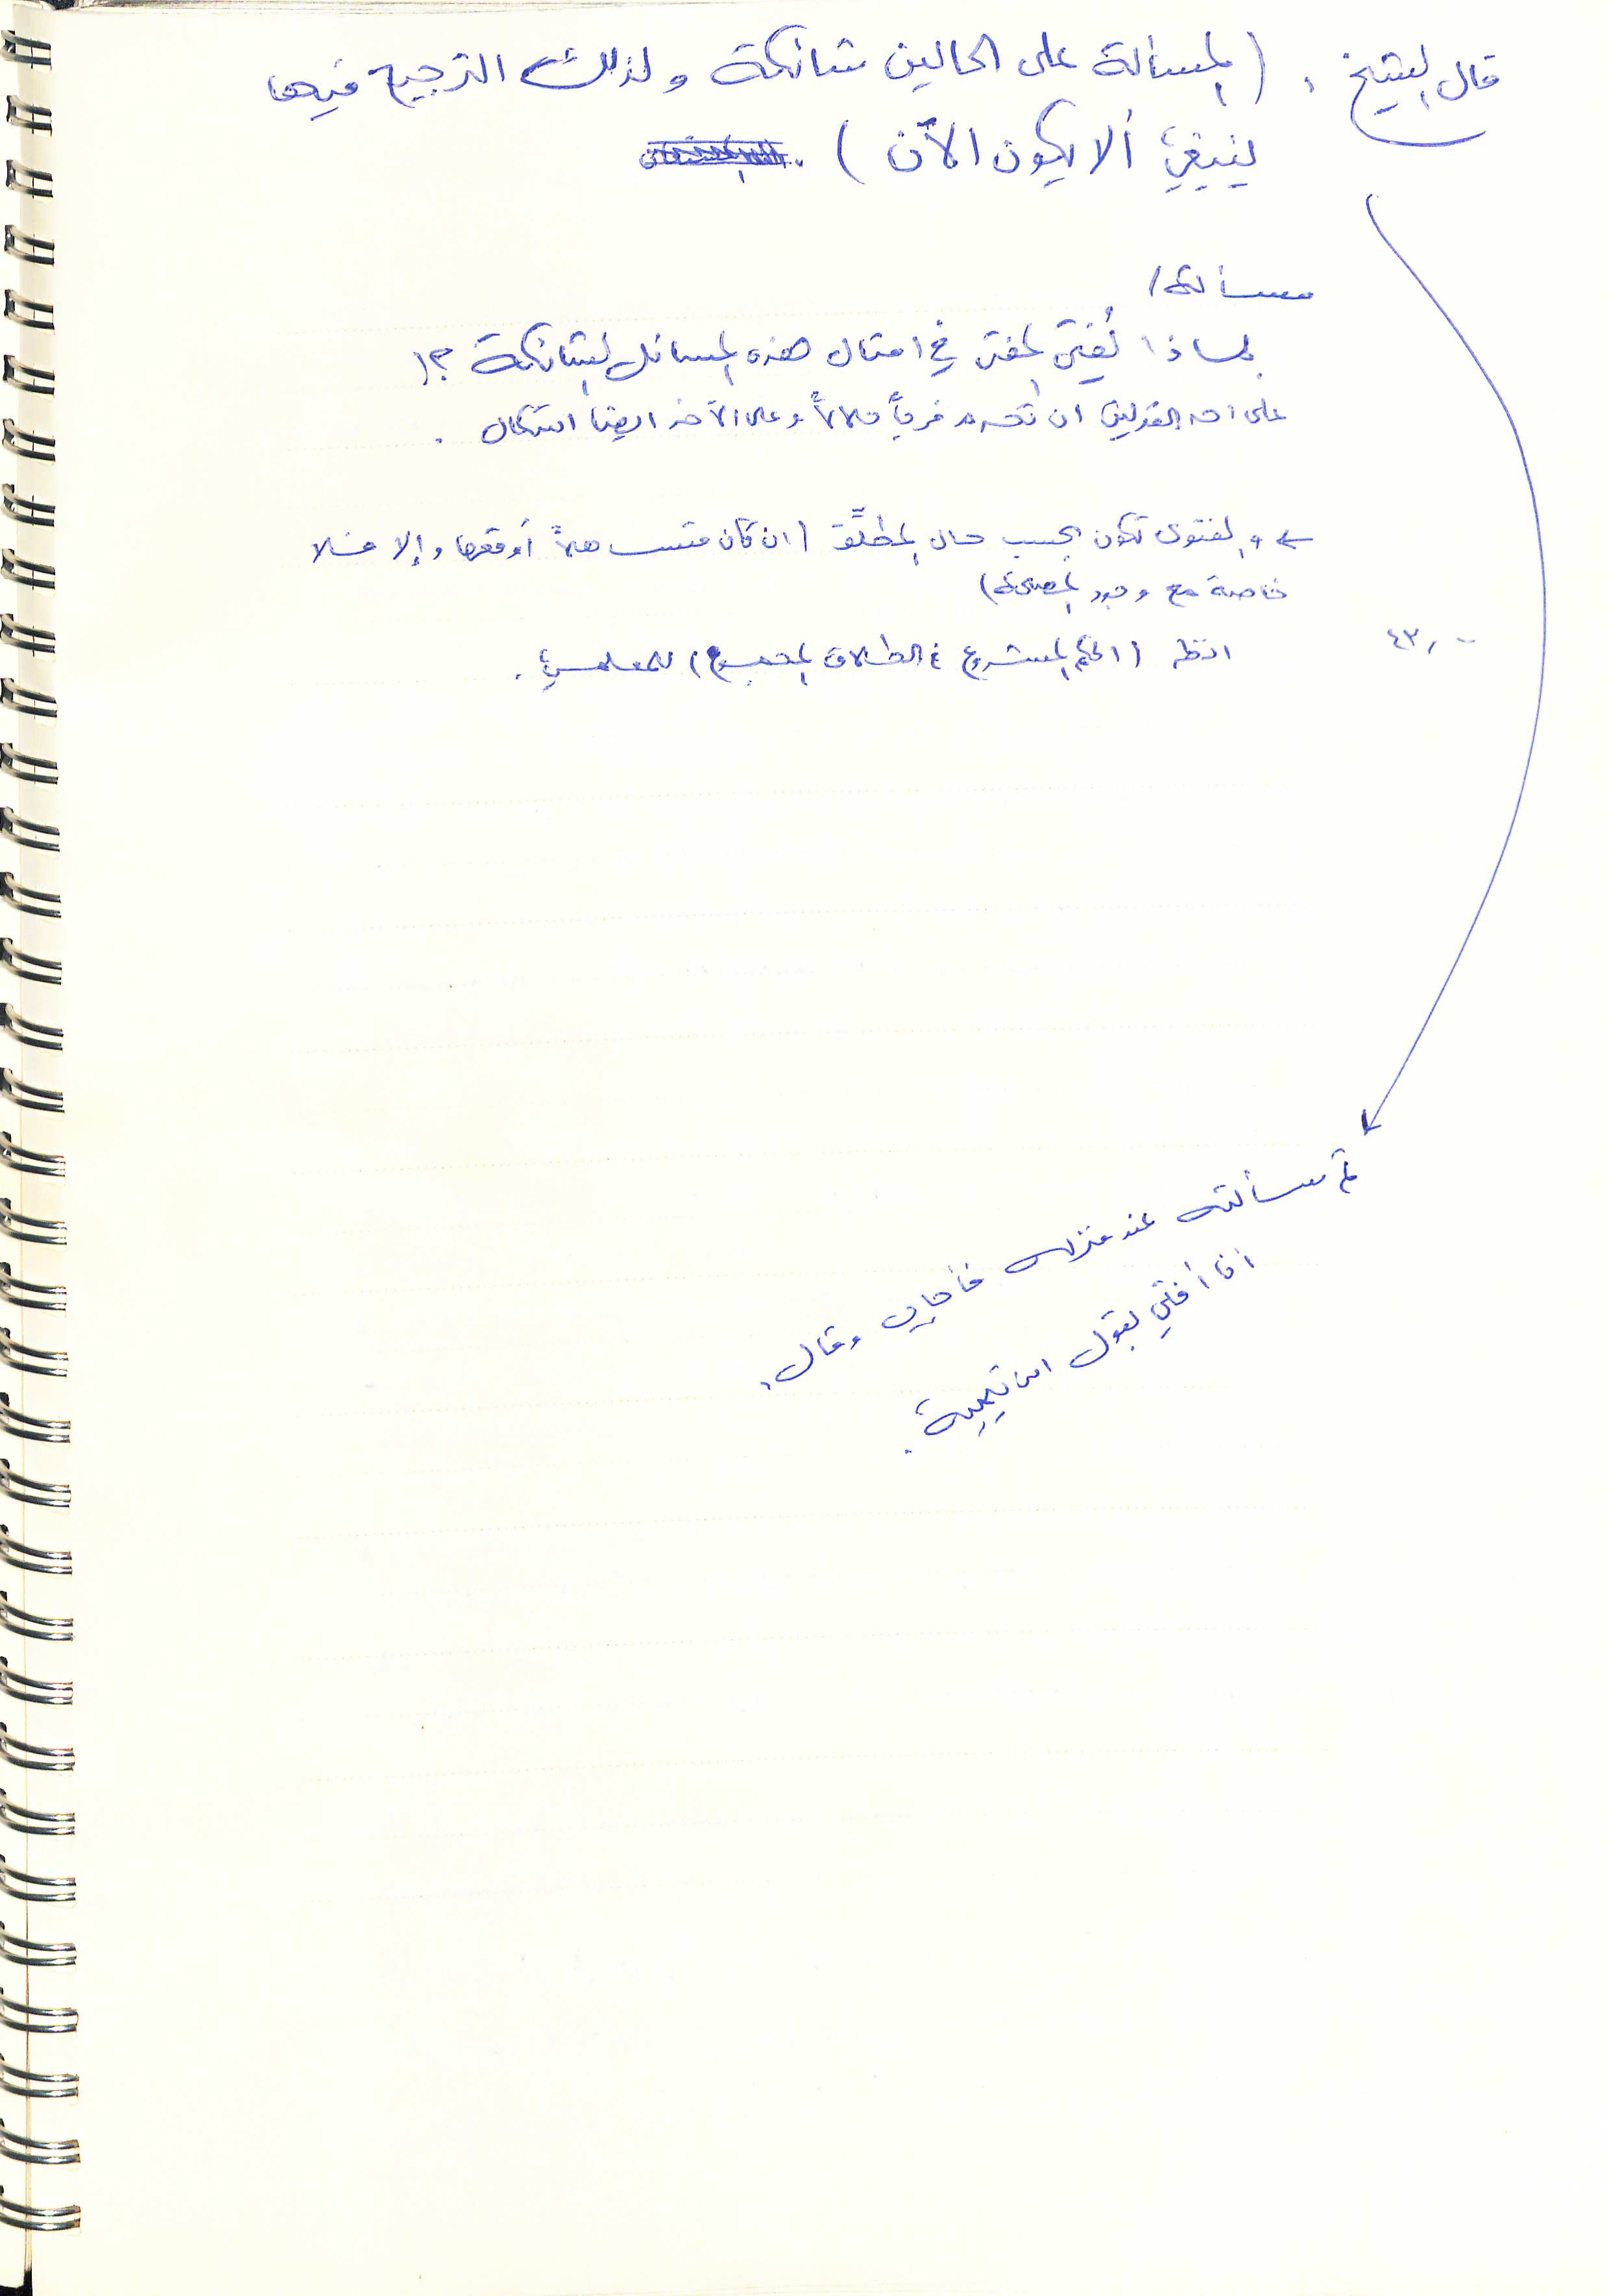 قال الشيخ : (المسألة على الحالين شائكة ولذلك الترجيح فيها
ينبغي ألا يكون الآن ) .
مسألة /
بماذا يُفتي المفتي في امثال هذه المسائل الشائكة ؟!
على احد القولين ان تحرم فرجاً حلالاً وعلى الآخر ايضا اشكال .
← والفتوى تكون بحسب حال المطلِّق (ان كان متساهلاً أوقعها وإلا فلا
خاصة مع وجود المصلحة)
٤٣,٠٠
انظر (الحكم المشروع في الطلاق المجموع) للمعلمي .
ثم سألته عند منزله فأجاب وقال :
انا أفتي بقول ابن تيمية .